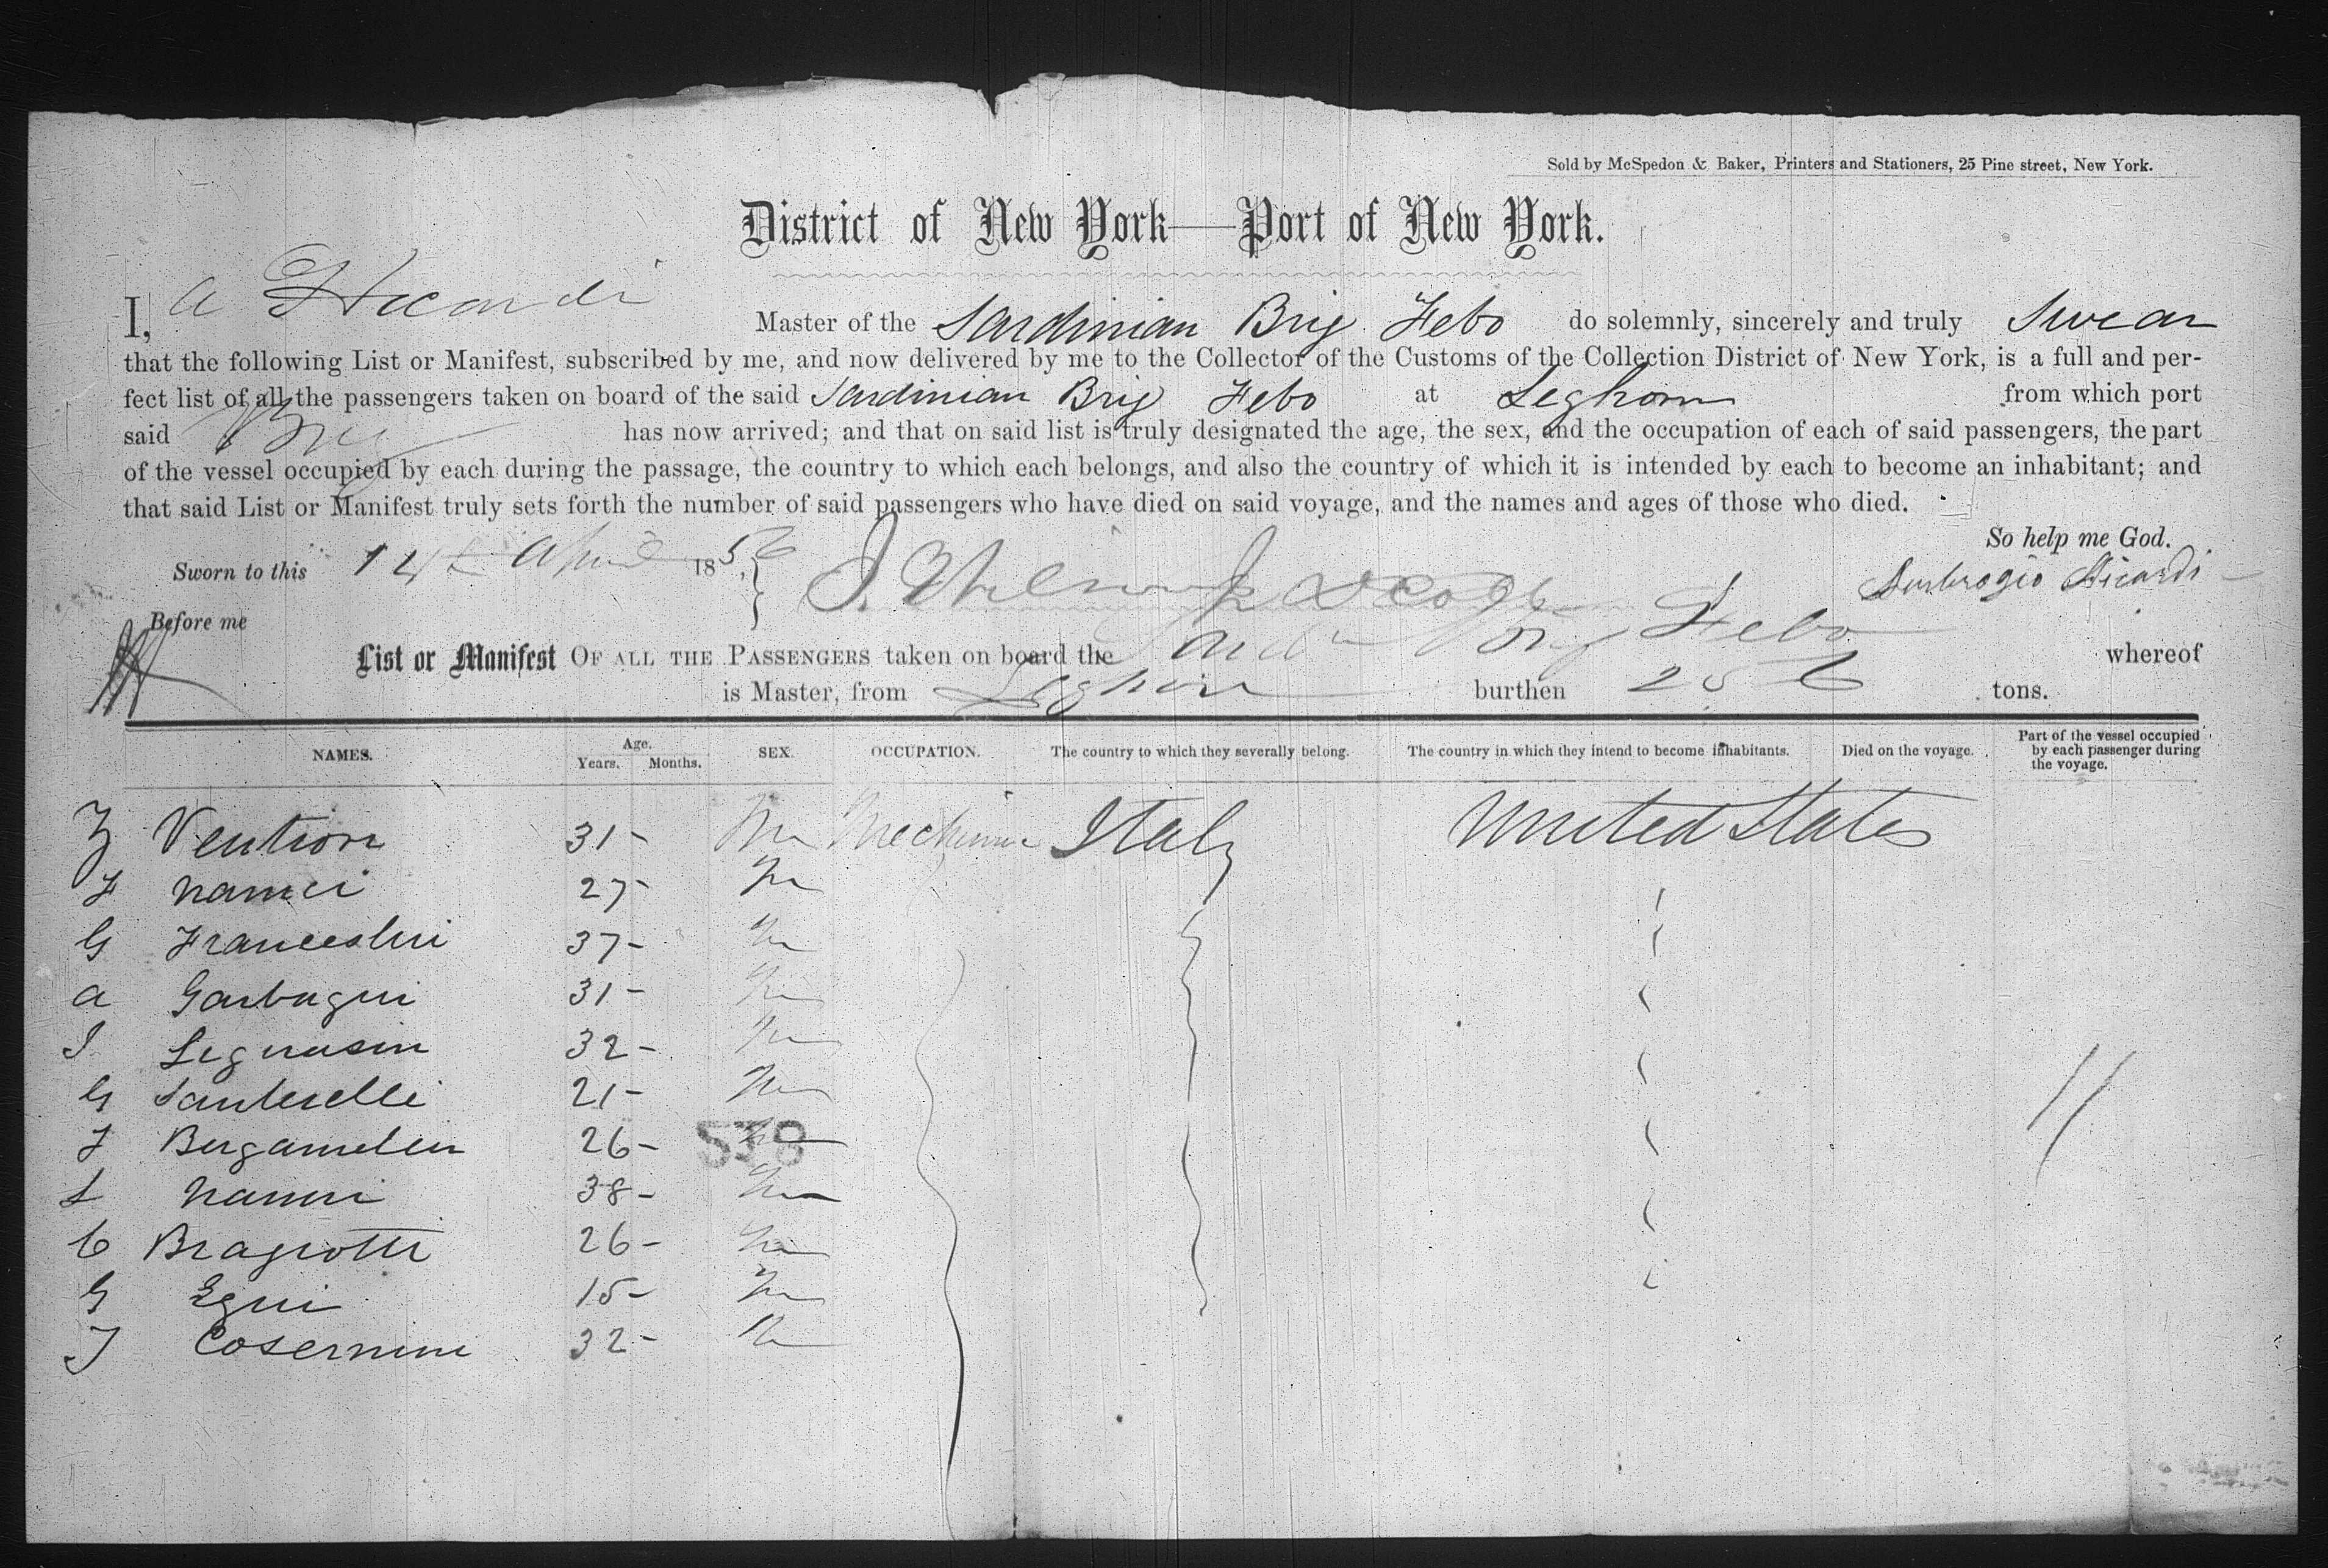 Sold by McSpedon & Baker, Printers and Stationers, 25 Pine street, New York.
District of New York—Port of New York.
I, A Master of the Sardinian Brig Febo do solemnly, sincerely and truly Swear
that the following List or Manifest, subscribed by me, and now delivered by me to the Collector of the Customs of the Collection District of New York, is a full and per-
fect list of all the passengers taken on board of the said Sardinian Brig Febo at Leghorn from which port
said Brig has now arrived; and that on said list is truly designated the age, the sex, and the occupation of each of said passengers, the part
of the vessel occupied by each during the passage, the country to which each belongs, and also the country of which it is intended by each to become an inhabitant; and
that said List or Manifest truly sets forth the number of said passengers who have died on said voyage, and the names and ages of those who died.
So help me God.
Sworn to this 14th April 1856 Ambrogio
Before me
List or Manifest OF ALL THE PASSENGERS taken on board the Brig Febo whereof
is Master, from Leghorn burthen 256 tons.
NAMES. Age. Years. Months. SEX. OCCUPATION. The country to which they severally belong. The country in which they intend to become inhabitants. Died on the voyage. Part of the vessel occupied by each passenger during the voyage.
Z 31- M Italy United States
F 27- M
G Franceshri 37- M
A Garbugni 31- M
I 32- M
G 21- M
F 26- M
538
L Nanni 38- M
C Bragiotti 26- M
G Egui 15- M
J 32- M